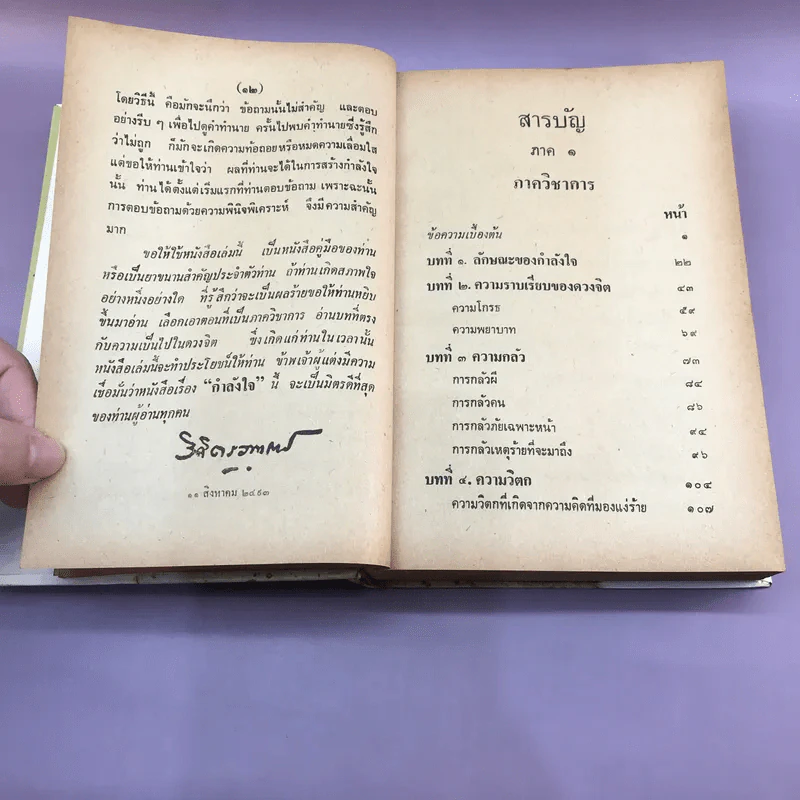 (๑๒)
โดยวิธีนี้ คือมักจะนึกว่า ข้อถามนั้นไม่สำคัญ และตอบ
อย่างรีบ ๆ เพื่อไปดูคำทำนาย ครั้นไปพบคำทำนายซึ่งรู้สึก
ว่าไม่ถูก ก็มักจะเกิดความท้อถอยหรือหมดความเลื่อมใส
แต่ขอให้ท่านเข้าใจว่า ผลที่ท่านจะได้ในการสร้างกำลังใจ
นั้น ท่านได้ตั้งแต่เริ่มแรกที่ท่านตอบข้อถาม เพราะฉะนั้น
การตอบข้อถามด้วยความพินิจพิเคราะห์ จึงมีความสำคัญ
มาก
ขอให้ใช้หนังสือเล่มนี้ เป็นหนังสือคู่มือของท่าน
หรือเป็นยาขนานสำคัญประจำตัวท่าน ถ้าท่านเกิดสภาพใจ
อย่างหนึ่งอย่างใด ที่รู้สึกว่าจะเป็นผลร้ายขอให้ท่านหยิบ
ขึ้นมาอ่าน เลือกเอาตอนที่เป็นภาควิชาการ อ่านบทที่ตรง
กับความเป็นไปในดวงจิต ซึ่งเกิดแก่ท่านในเวลานั้น
หนังสือเล่มนี้จะทำประโยชน์ให้ท่าน ข้าพเจ้าผู้แต่งมีความ
เชื่อมั่นว่าหนังสือเรื่อง “กำลังใจ” นี้ จะเป็นมิตรดีที่สุด
ของท่านผู้อ่านทุกคน
๑๑ สิงหาคม ๒๔๙๓
สารบัญ
ภาค ๑
ภาควิชาการ
หน้า
ข้อความเบื้องต้น ๑
บทที่ ๑. ลักษณะของกำลังใจ ๒๒
บทที่ ๒. ความราบเรียบของดวงจิต ๔๓
ความโกรธ ๕๙
ความพยาบาท ๖๙
บทที่ ๓ ความกลัว ๗๓
การกลัวผี ๘๔
การกลัวคน ๘๖
การกลัวภัยเฉพาะหน้า ๙๔
การกลัวเหตุร้ายที่จะมาถึง ๙๖
บทที่ ๔. ความวิตก ๑๐๔
ความวิตกที่เกิดจากความคิดที่มองแง่ร้าย ๑๐๗